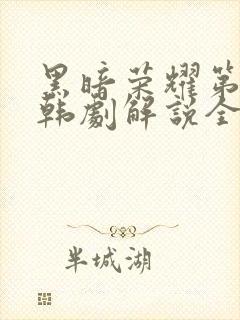 黑暗荣耀第
韩劇解説全
半城湖